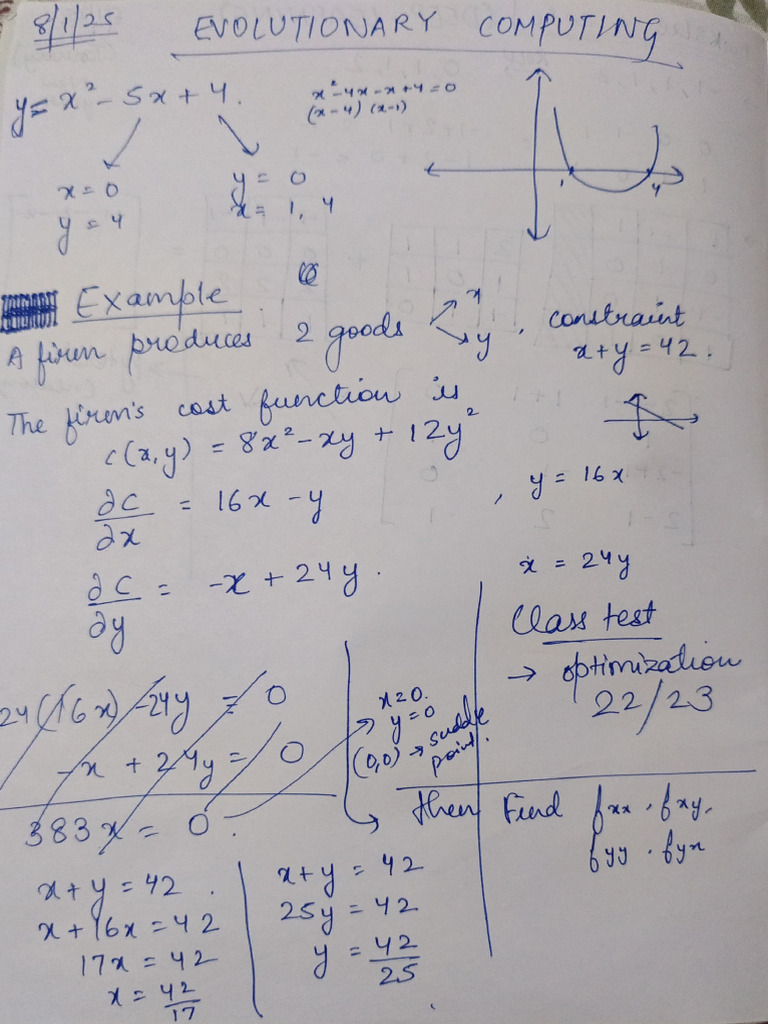 8/1/25
EVOLUTIONARY COMPUTING
y = x² - 5x + 4.
x² - 4x - x + 4 = 0
(x-4) (x-1)
x = 0
y = 4
y = 0
x = 1, 4
1 4
Example
A firm produces 2 goods x y, constraint
x + y = 42.
The firm's cost function is
c(x,y) = 8x² - xy + 12y²
∂C/∂x = 16x - y , y = 16x
∂C/∂y = -x + 24y. x = 24y
Class test
→ optimization
22/23
24(16x) - 24y = 0
-x + 24y = 0
383x = 0.
x = 0.
y = 0
(0,0) → saddle
point.
then Find fxx, fxy,
fyy, fyx
x + y = 42.
x + 16x = 42
17x = 42
x = 42/17
x + y = 42
25y = 42
y = 42/25